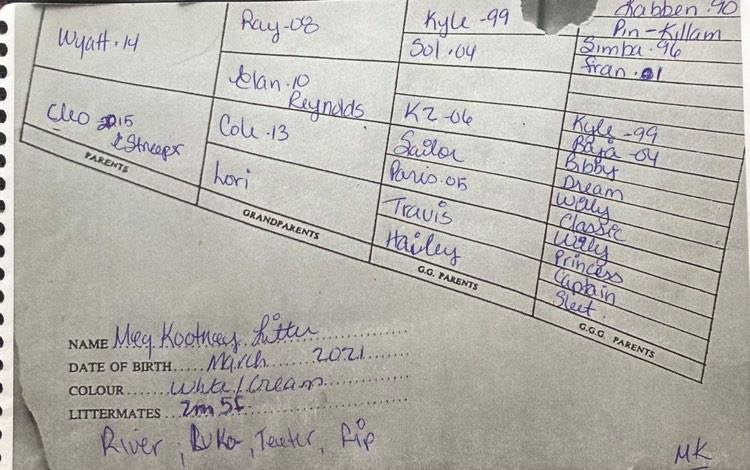 Wyatt · 14
Cleo 2015
PARENTS
Ray - 08
Elan · 10
Reynolds
Cole · 13
Lori
GRANDPARENTS
Kyle - 99
Sol · 04
K2 - 06
Sailor
Paris · 05
Travis
Hailey
G.G. PARENTS
Rabben · 90
Pin - Killam
Simba · 96
Fran · 01
Kyle - 99
Baja - 04
Bibby
Dream
Wely
Classic
Wely
Princess
Captain
Sleet
G.G.G. PARENTS
NAME Meg Kootney Litter
DATE OF BIRTH..... March 2021
COLOUR...... White / Cream
LITTERMATES ... 2m 5f
River, Teeter, Rip
MK